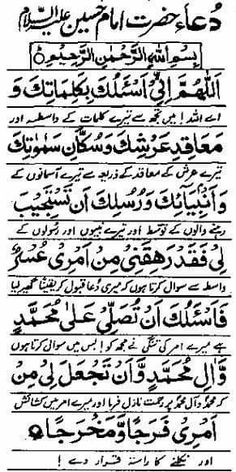 دُعاء حضرت امام حسین علیہ السلام
بِسْمِ اللهِ الرَّحْمٰنِ الرَّحِيْمِ
اَللّٰهُمَّ اِنِّيْ اَسْئَلُكَ بِكَلِمَاتِكَ وَ
اے اللہ! میں تجھ سے تیرے کلمات کے واسطہ اور
مَعَاقِدِ عَرْشِكَ وَسُكَّانِ سَمٰوٰتِكَ
تیرے عرش کے معاقد کے ذریعہ سے تیرے آسمانوں کے
وَاَنْبِيَآئِكَ وَرُسُلِكَ اَنْ تَسْتَجِيْبَ
رہنے والوں کے توسط اور تیرے نبیوں اور رسولوں کے
لِيْ فَقَدْ رَهِقَنِيْ مِنْ اَمْرِيْ عُسْرٌ
واسطہ سے سوال کرتا ہوں کہ میری دعا قبول کر یقیناً گھیر لیا
فَاَسْئَلُكَ اَنْ تُصَلِّيَ عَلٰى مُحَمَّدٍ
ہے میرے امر کی تنگی نے مجھ کو پس میں سوال کرتا ہوں
وَّاٰلِ مُحَمَّدٍ وَّاَنْ تَجْعَلَ لِيْ مِنْ
کہ محمدؐ و آل محمدؐ پر رحمت نازل فرما اور میرے امر میں کشائش
اَمْرِيْ فَرَجًا وَّمَخْرَجًا
اور نکلنے کا راستہ قرار دے!